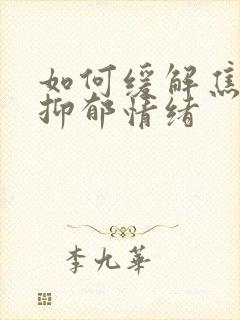 如何缓解焦
抑郁情绪
李九華